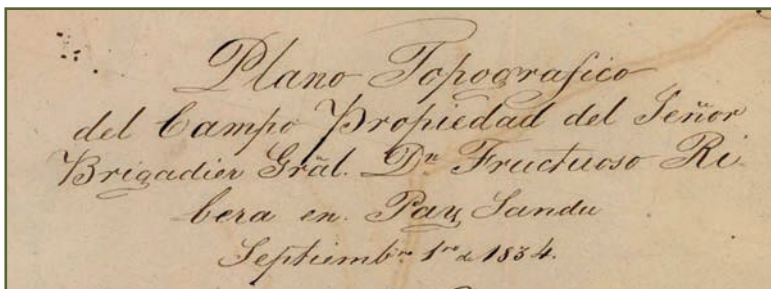 Plano Topografico
del Campo Propiedad del Señor
Brigadier Gral. Dn Fructuoso Ri
bera en Pay Sandu
Septiembre 1ro de 1834.